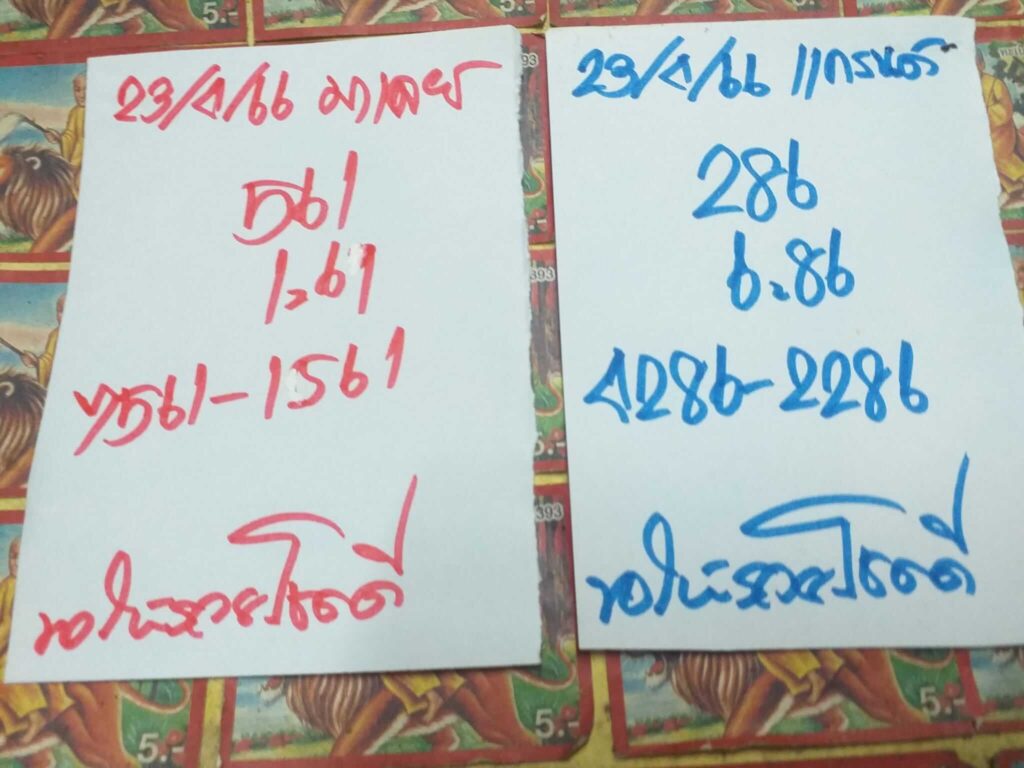 23/4/66 มาเลย์
561
1.61
7561-1561
ขอให้รวยโชคดี
23/4/66 แกรนด์
286
6.86
4286-2286
ขอให้รวยโชคดี
5.-
393
5.-
393
5.-
5.-